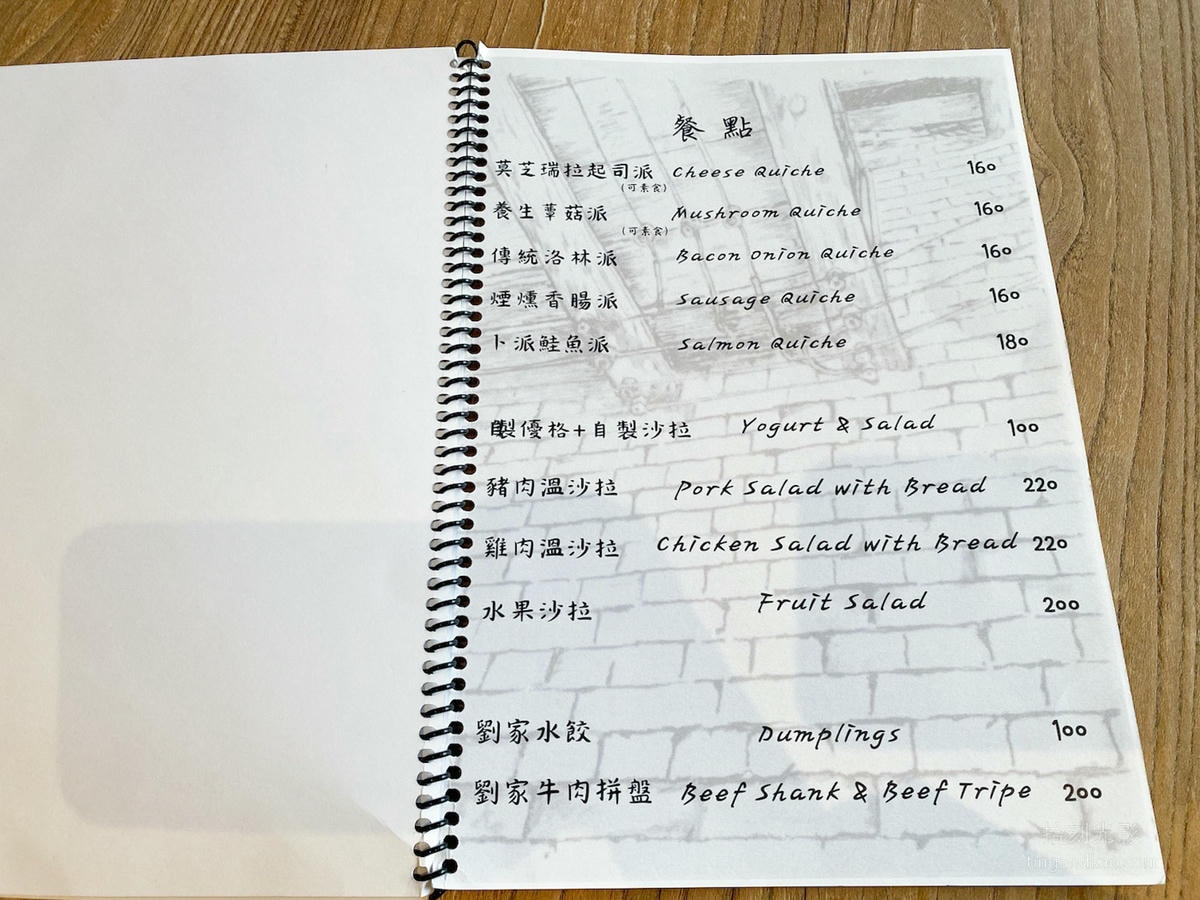 餐點
莫芝瑞拉起司派 Cheese Quiche 160
(可素食)
養生蕈菇派 Mushroom Quiche 160
(可素食)
傳統洛林派 Bacon Onion Quiche 160
煙燻香腸派 Sausage Quiche 160
卜派鮭魚派 Salmon Quiche 180
自製優格+自製沙拉 Yogurt & Salad 100
豬肉溫沙拉 Pork Salad with Bread 220
雞肉溫沙拉 Chicken Salad with Bread 220
水果沙拉 Fruit Salad 200
劉家水餃 Dumplings 100
劉家牛肉拼盤 Beef Shank & Beef Tripe 200